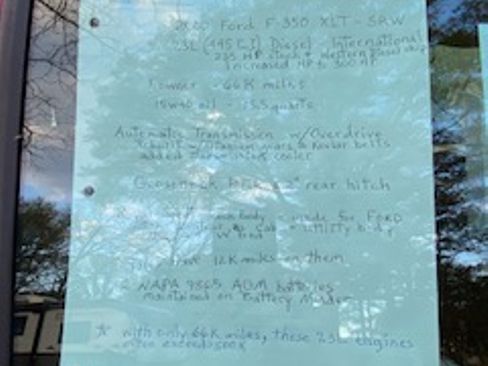 2000 Ford F-350 XLT - SRW
7.3L (445 C.I) Diesel - International
235 HP stock + Western Diesel chip
Increased HP to 300 HP
1 owner - 66K miles
15W40 oil - 15.5 quarts
Automatic Transmission w/Overdrive
rebuilt w/ titanium gears & Kevlar belts
added transmission cooler
Gooseneck hitch & 2" rear hitch
body - made for FORD
to cab - utility body
12K miles on them
2 NAPA 9865 AGM batteries
maintained on Battery Minder
* with only 66K miles, these 7.3L engines